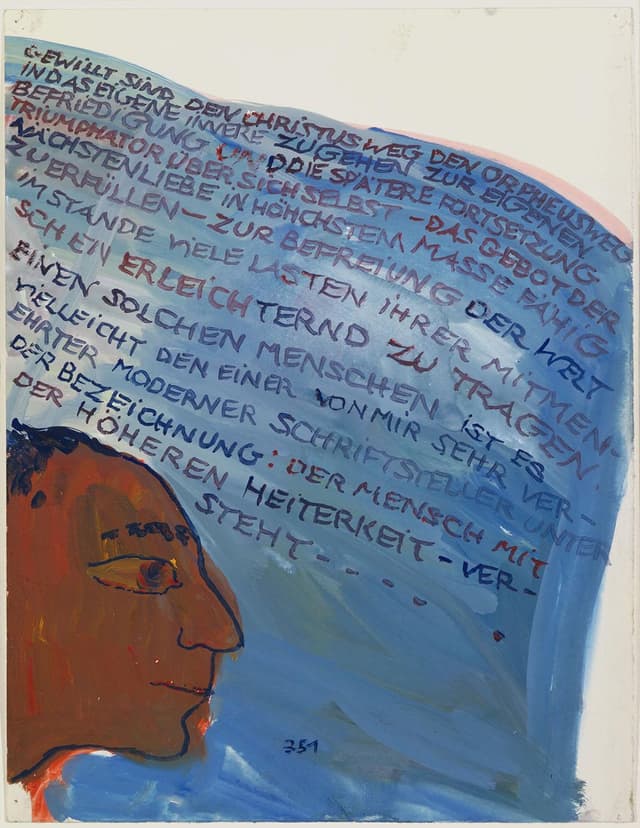 GEWILLT SIND DEN CHRISTUSWEG DEN ORPHEUSWEG
IN DAS EIGENE INNERE ZUGEHEN ZUR EIGENEN
BEFRIEDIGUNG UND DIE SPÄTERE FORTSETZUNG
TRIUMPHATOR ÜBER SICH SELBST – DAS GEBOT DER
NÄCHSTENLIEBE IN HÖHCHSTEM MASSE FÄHIG
ZU ERFÜLLEN – ZUR BEFREIUNG DER WELT
IM STANDE VIELE LASTEN IHRER MITMEN-
SCHEN ERLEICHTERND ZU TRAGEN.
EINEN SOLCHEN MENSCHEN IST ES
VIELLEICHT DEN EINER VON MIR SEHR VER-
EHRTER MODERNER SCHRIFTSTELLER UNTER
DER BEZEICHNUNG: DER MENSCH MIT
DER HÖHEREN HEITERKEIT – VER-
STEHT – – – – .
351